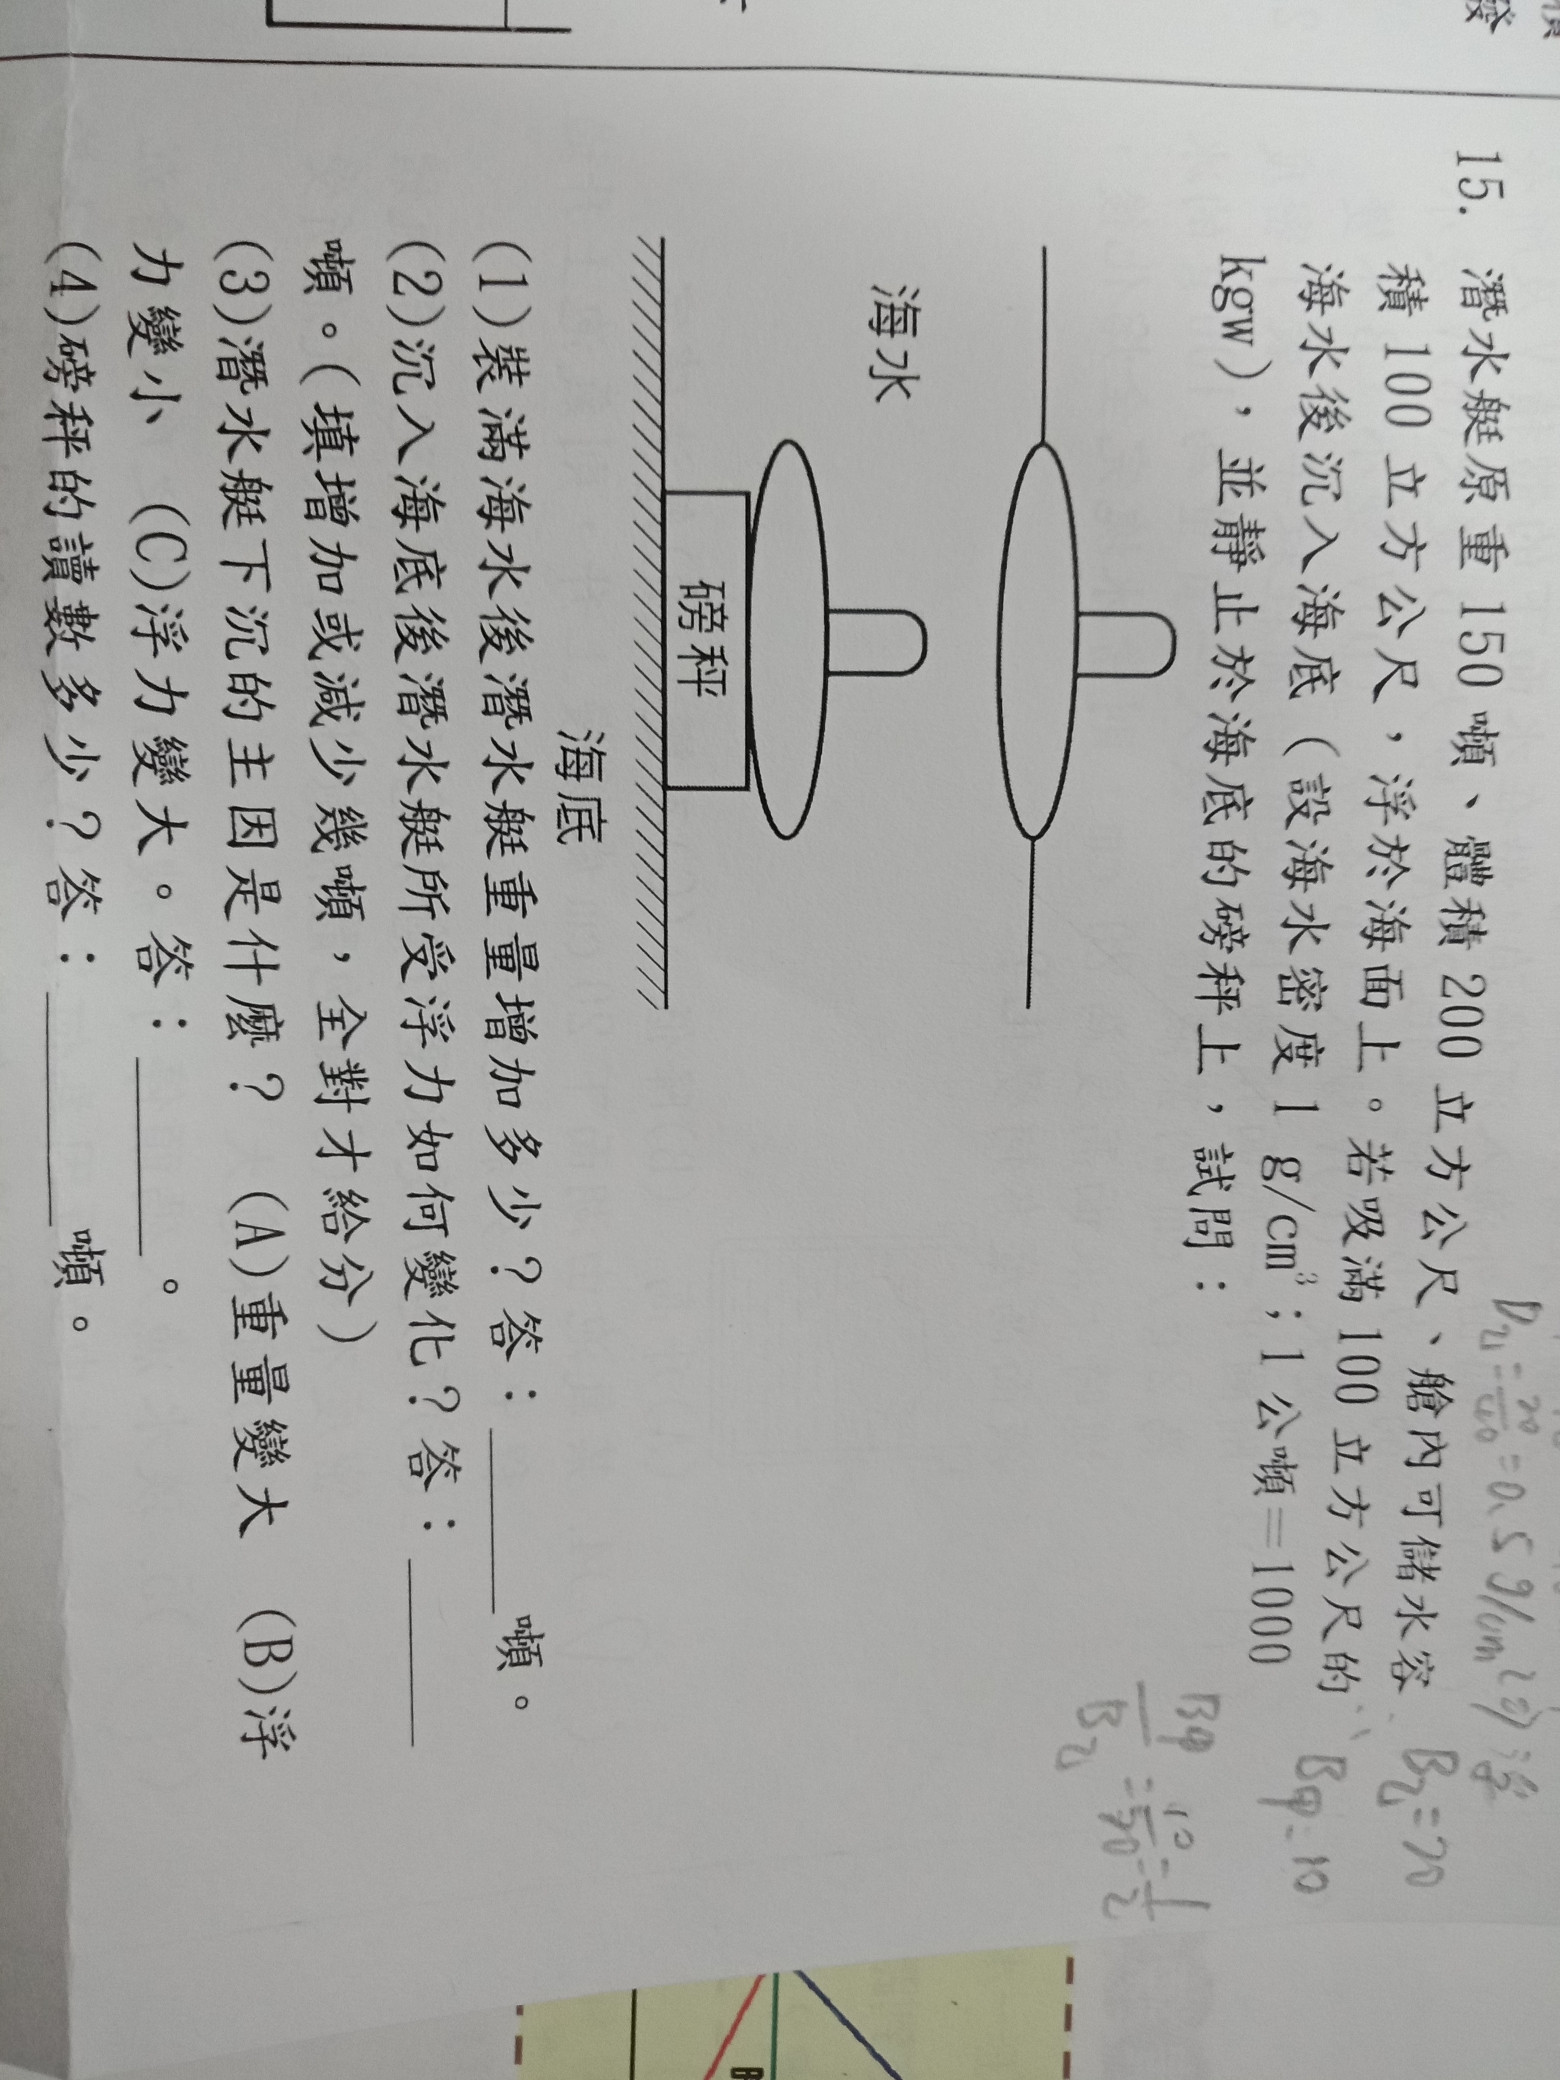 15. 潛水艇原重 150 噸、體積 200 立方公尺、艙內可儲水容
積 100 立方公尺，浮於海面上。若吸滿 100 立方公尺的
海水後沉入海底（設海水密度 1 g/cm³；1 公噸＝1000
kgw），並靜止於海底的磅秤上，試問：
海水
磅秤
海底
(1)裝滿海水後潛水艇重量增加多少？答：______噸。
(2)沉入海底後潛水艇所受浮力如何變化？答：______
噸。（填增加或減少幾噸，全對才給分）
(3)潛水艇下沉的主因是什麼？ (A)重量變大 (B)浮
力變小 (C)浮力變大。答：______。
(4)磅秤的讀數多少？答：______噸。
B乙=20
B甲=10
B甲/B乙=10/20=1/2
B